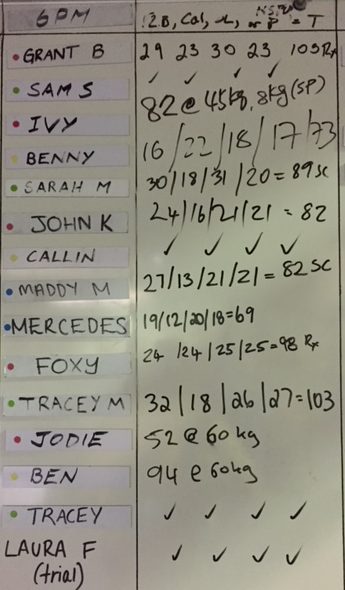 6PM
GRANT B 29 23 30 23 105Rx
SAM S ✓ ✓ ✓ ✓
IVY 82 @ 45kg, 8kg (SP)
BENNY 16/22/18/17/73
SARAH M 30/18/31/20=89 SC
JOHN K 24/16/21/21 = 82
CALLIN ✓ ✓ ✓ ✓
MADDY M 27/13/21/21=82 SC
MERCEDES 19/12/20/18=69
FOXY 24/24/25/25=98 Rx
TRACEY M 32/18/26/27=103
JODIE 52 @ 60kg
BEN 94 @ 60kg
TRACEY ✓ ✓ ✓ ✓
LAURA F ✓ ✓ ✓ ✓
(trial)